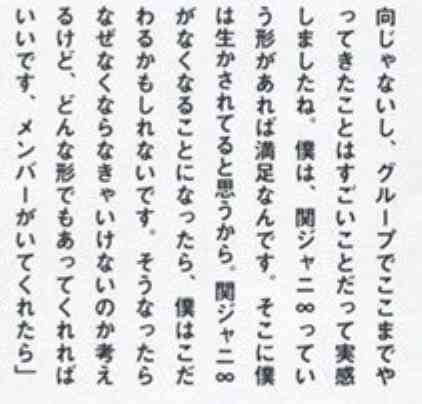 向じゃないし、グループでここまでや
ってきたことはすごいことだって実感
しましたね。僕は、関ジャニ∞ってい
う形があれば満足なんです。そこに僕
は生かされてると思うから。関ジャニ∞
がなくなることになったら、僕はこだ
わるかもしれないです。そうなったら
なぜなくならなきゃいけないのか考え
るけど、どんな形でもあってくれれば
いいです、メンバーがいてくれたら」